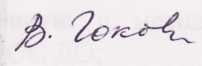 В. Гоков